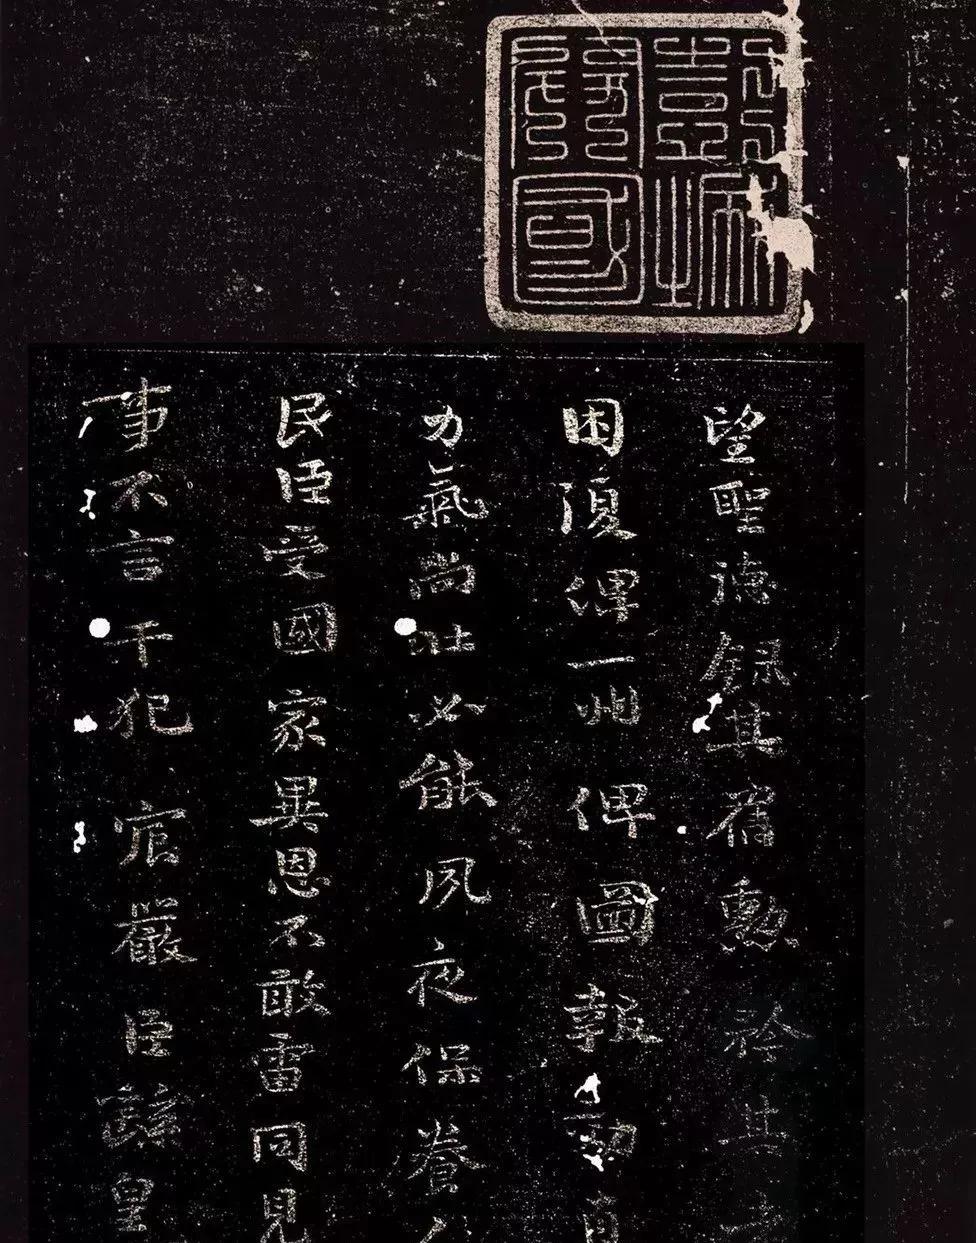 望聖德録其舊勳矜其
困復俾一州俾圖報効
力氣尚壯必能夙夜保養人
民臣受國家異恩不敢雷同見
事不言干犯宸嚴臣繇皇